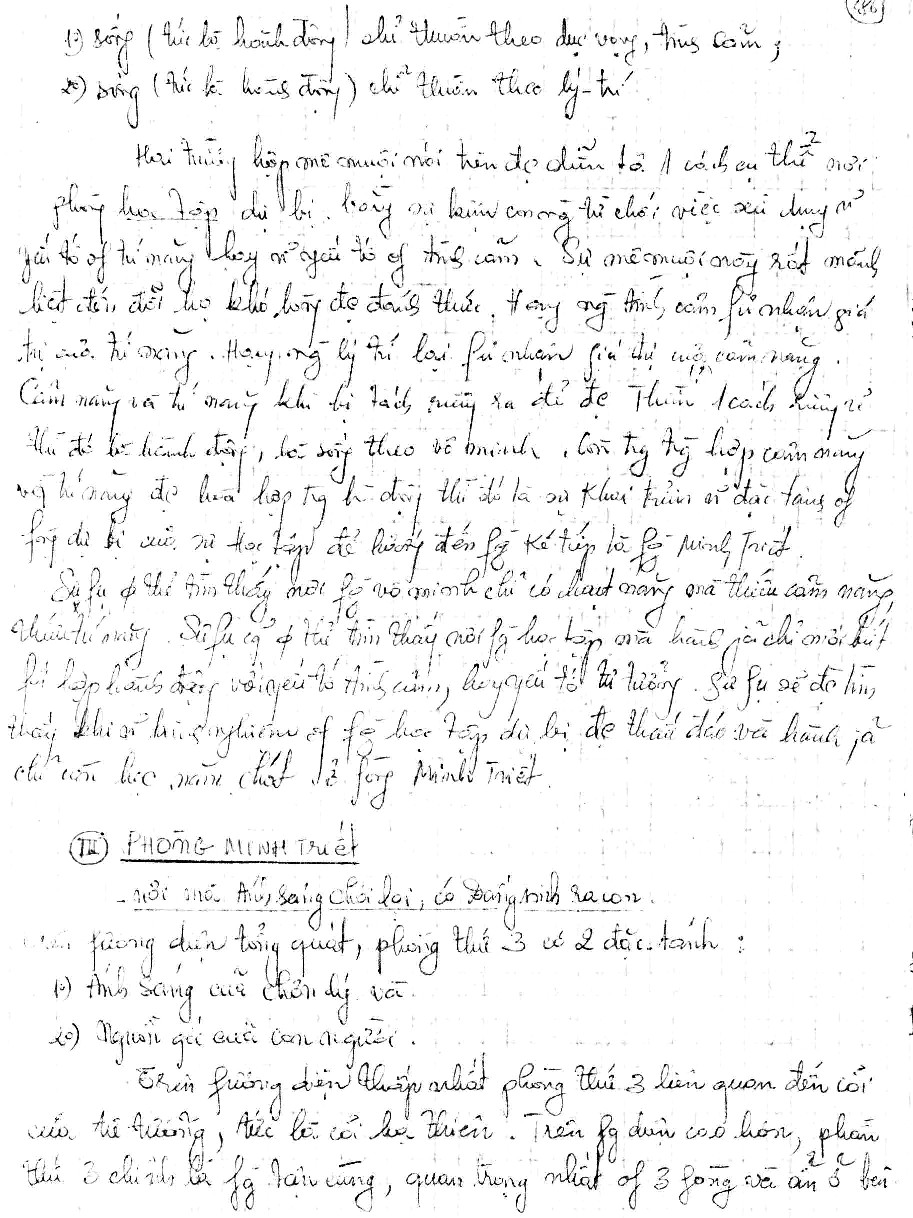 486
1º) sống (tức là hành động) chỉ thuần theo dục vọng, tình cảm;
2º) sống (tức là hành động) chỉ thuần theo lý-trí
Hai trường hợp mê muội nói trên đc diễn tả 1 cách cụ thể nơi
phòng học tập dự bị. bằng sự kiện con ng từ chối việc sử dụng
yếu tố of trí năng hay yếu tố of tình cảm. Sự mê muội này rất mãnh
liệt đến đỗi họ khó lòng đc đánh thức. Hạng ng tình cảm fủ nhận giá
trị của trí năng. Hạng ng lý trí lại fủ nhận giá trị của cảm năng.
Cảm năng và trí năng khi bị tách riêng ra để đc 1 cách riêng rẽ
thì đó là hành động, là sống theo vô minh. Còn tg trg hợp cảm năng
và trí năng đc hòa hợp tg h. động thì đó là sự Khai triển đặc tánh of
fòng dự bị của sự Học tập để hướng đến fg kế tiếp là fg Minh Triết.
Sư fụ ∅ thể tìm thấy nơi fg vô minh chỉ có hoạt năng mà thiếu cảm năng,
thiếu trí năng. Sư fụ cg ∅ thể tìm thấy nơi fg học tập mà hành jả chỉ mới bắt
hợp hành động với yếu tố tình cảm, hay yếu tố tư tưởng. Sư fụ sẽ đc tìm
thấy khi kinh nghiệm of fg học tập dự bị đc thấu đáo và hành jả
chỉ còn học năm chót ở fòng Minh Triết.
III PHÒNG MINH Triết
- nơi mà Ánh sáng chói lọi, có Đấng sinh ra con.
Trên fương diện tổng quát, phòng thứ 3 có 2 đặc tánh:
1º) Ánh sáng của chơn lý và
2º) Nguồn gốc của con người.
Trên fương diện thấp nhất phòng thứ 3 liên quan đến cõi
của tư tưởng, tức là cõi hạ thiên. Trên fg diện cao hơn, phòng
thứ 3 chính là fg tận cùng, quan trọng nhất of 3 fòng và ẩn ở bên